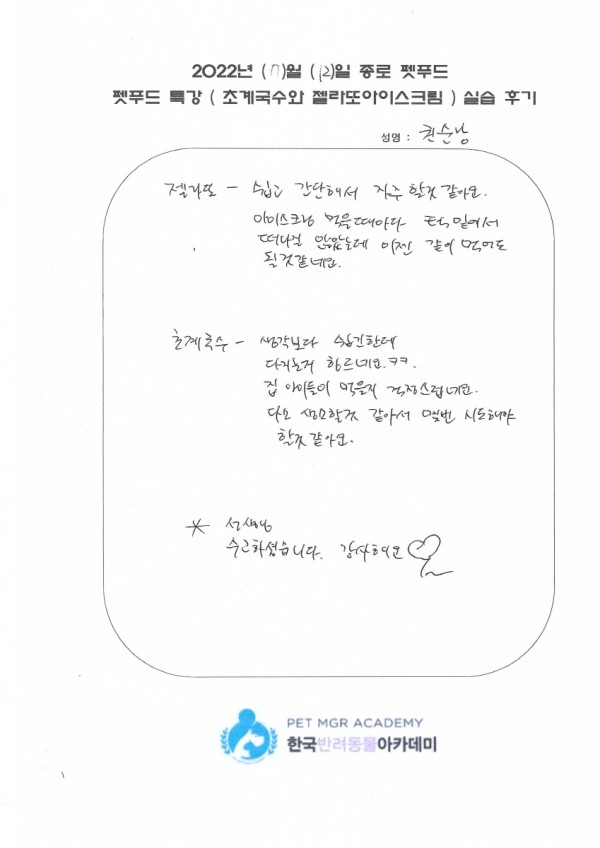 2022년 (7)월 (12)일 종로 펫푸드
펫푸드 특강 ( 초계국수와 젤라또아이스크림 ) 실습 후기
성명 : 권순남
젤라또 - 쉽고 간단해서 자주 할것 같아요.
아이스크림 먹을때마다 턱밑에서
떠나질 않았는데 이젠 같이 먹어도
될것같네요.
초계국수 - 생각보다 쉽긴한데
다지는게 힘드네요.ㅋㅋ
집 아이들이 먹을지 걱정스럽네요.
다소 생소할것 같아서 몇번 시도해야
할것같아요.
* 선생님
수고하셨습니다. 감사해요
PET MGR ACADEMY
한국반려동물아카데미